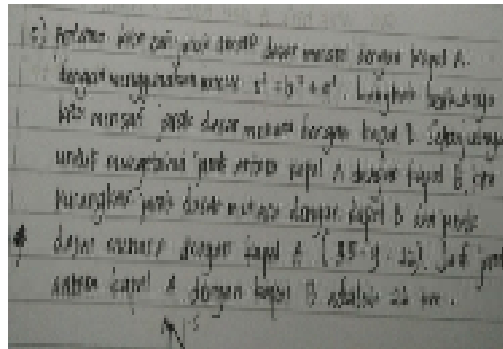 5) Pertama kita cari jarak antara dasar menara dengan kapal A.
dengan menggunakan rumus c² = b² + a². Langkah berikutnya
kita mencari jarak dasar menara dengan kapal B. Selanjutnya
untuk mengetahui jarak antara kapal A dengan kapal B, kita
kurangkan jarak dasar menara dengan kapal B dan jarak
dasar menara dengan kapal A (35 - 9 = 26). Jadi jarak
antara kapal A dengan kapal B adalah